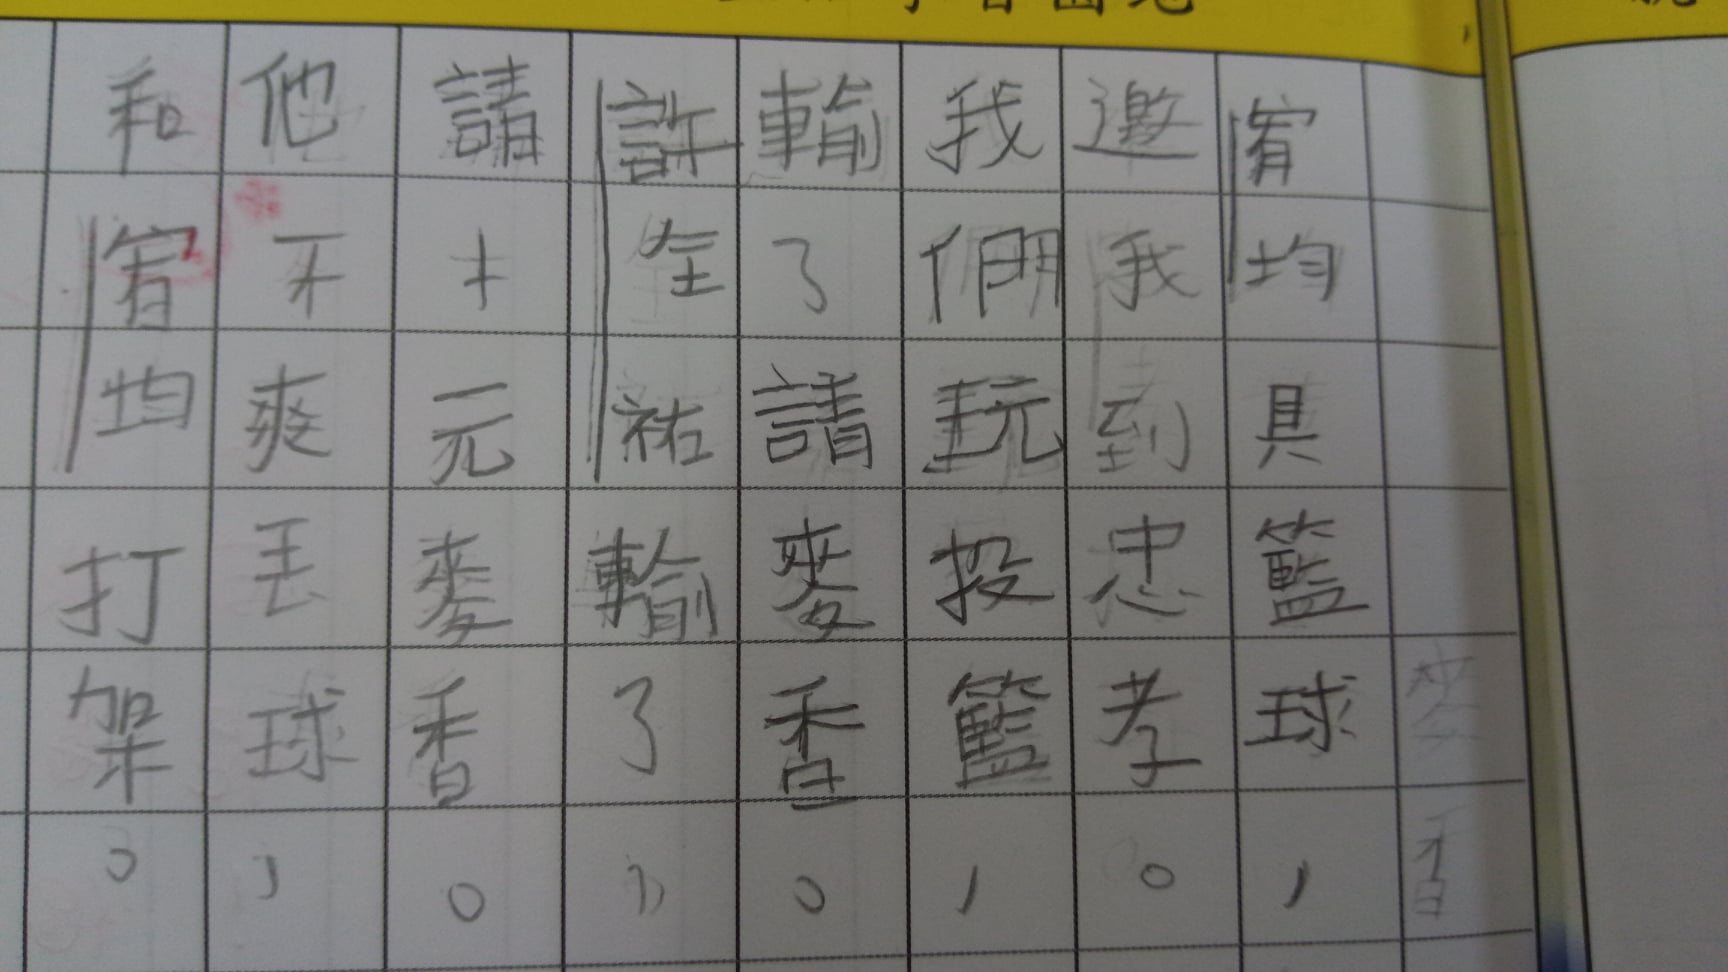 宥均具籃球，
邀我到忠孝。
我們玩投籃，
輸了請麥香。
許在祐輸了，
請十元麥香。
他不爽丟球，
和宥均打架。